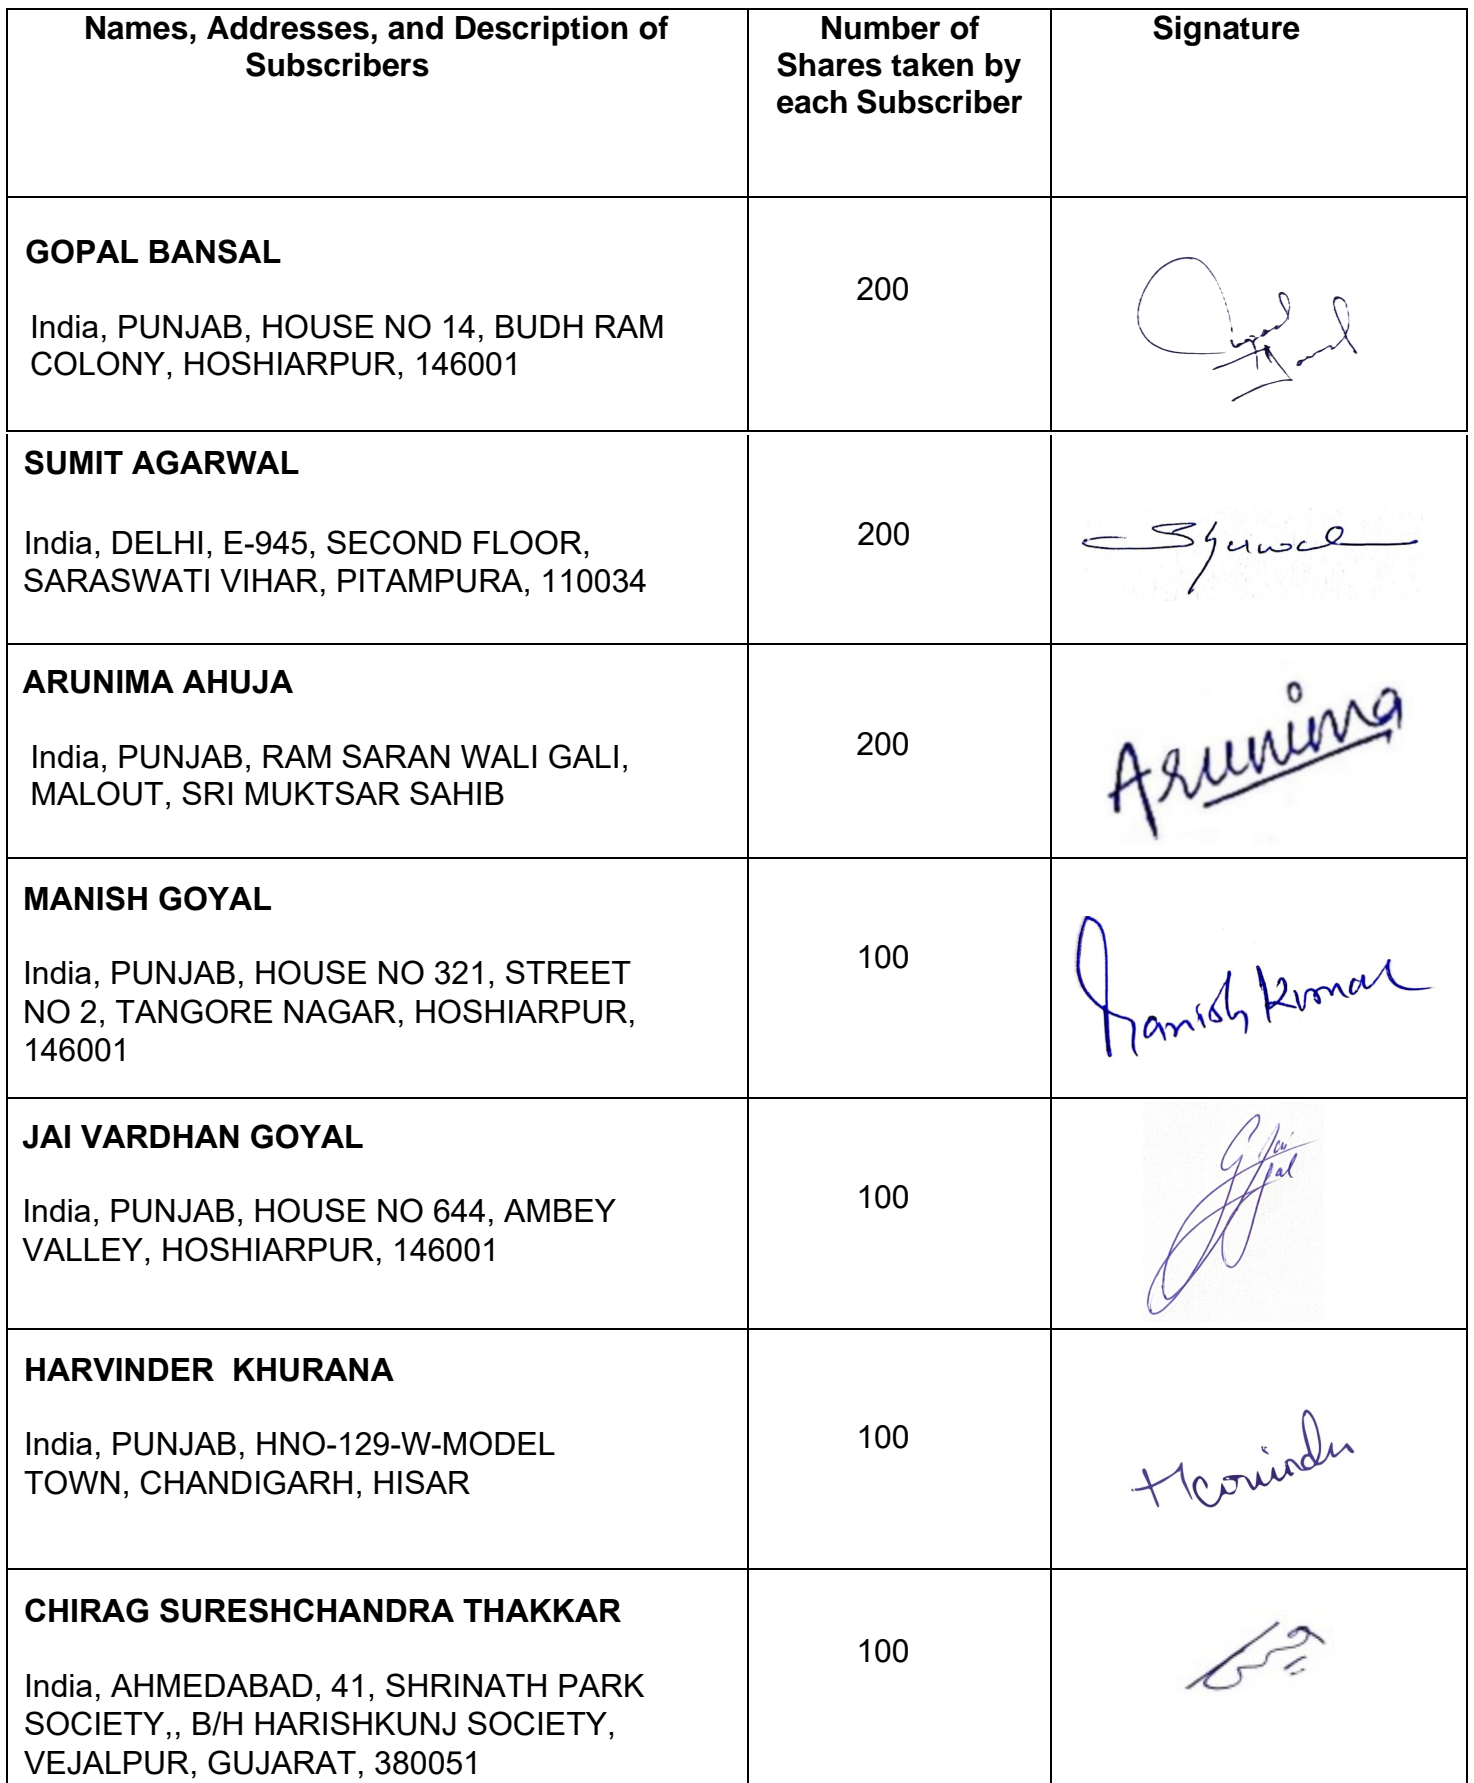 Names, Addresses, and Description of
Subscribers
Number of
Shares taken by
each Subscriber
Signature
GOPAL BANSAL
India, PUNJAB, HOUSE NO 14, BUDH RAM
COLONY, HOSHIARPUR, 146001
200
SUMIT AGARWAL
India, DELHI, E-945, SECOND FLOOR,
SARASWATI VIHAR, PITAMPURA, 110034
200
ARUNIMA AHUJA
India, PUNJAB, RAM SARAN WALI GALI,
MALOUT, SRI MUKTSAR SAHIB
200
Arunima
MANISH GOYAL
India, PUNJAB, HOUSE NO 321, STREET
NO 2, TANGORE NAGAR, HOSHIARPUR,
146001
100
Manish Kumar
JAI VARDHAN GOYAL
India, PUNJAB, HOUSE NO 644, AMBEY
VALLEY, HOSHIARPUR, 146001
100
HARVINDER  KHURANA
India, PUNJAB, HNO-129-W-MODEL
TOWN, CHANDIGARH, HISAR
100
Harvinder
CHIRAG SURESHCHANDRA THAKKAR
India, AHMEDABAD, 41, SHRINATH PARK
SOCIETY,, B/H HARISHKUNJ SOCIETY,
VEJALPUR, GUJARAT, 380051
100